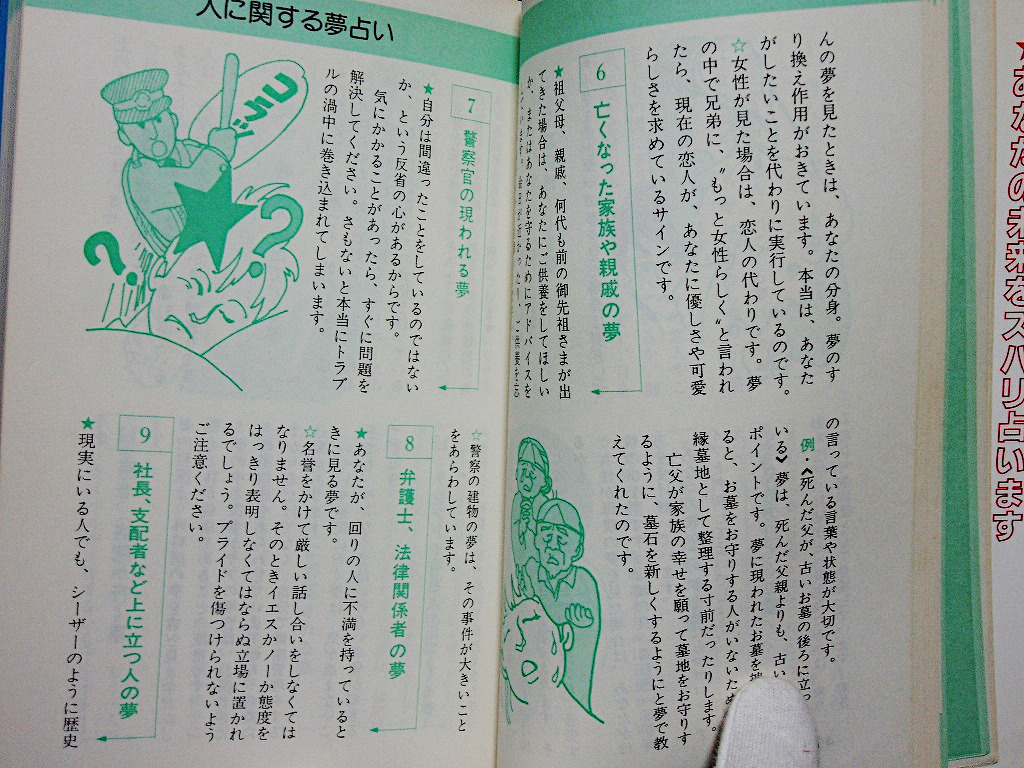 んの夢を見たときは、あなたの分身。夢のす
り換え作用がおきています。本当は、あなた
がしたいことを代わりに実行しているのです。
☆女性が見た場合は、恋人の代わりです。夢
の中で兄弟に、〝もっと女性らしく〟と言われ
たら、現在の恋人が、あなたに優しさや可愛
らしさを求めているサインです。
6 亡くなった家族や親戚の夢
★祖父母、親戚、何代も前の御先祖さまが出
てきた場合は、あなたにご供養をしてほしい
か、またはあなたを守るためにアドバイスを
の言っている言葉や状態が大切です。
例・《死んだ父が、古いお墓の後ろに立っ
いる》夢は、死んだ父親よりも、古い
ポイントです。夢に現われたお墓を
ると、お墓をお守りする人がいないため
縁墓地として整理する寸前だったりします。
亡父が家族の幸せを願って墓地をお守りす
るように、墓石を新しくするようにと夢で教
えてくれたのです。
人に関する夢占い
7 警察官の現われる夢
★自分は間違ったことをしているのではない
か、という反省の心があるからです。
気にかかることがあったら、すぐに問題を
解決してください。さもないと本当にトラブ
ルの渦中に巻き込まれてしまいます。
コラッ
?
?
☆警察の建物の夢は、その事件が大きいこと
をあらわしています。
8 弁護士、法律関係者の夢
★あなたが、回りの人に不満を持っていると
きに見る夢です。
☆名誉をかけて厳しい話し合いをしなくては
なりません。そのときイエスかノーか態度を
はっきり表明しなくてはならぬ立場に置かれ
るでしょう。プライドを傷つけられないよう
ご注意ください。
9 社長、支配者など上に立つ人の夢
★現実にいる人でも、シーザーのように歴史
★あなたの未来をズバリ占います